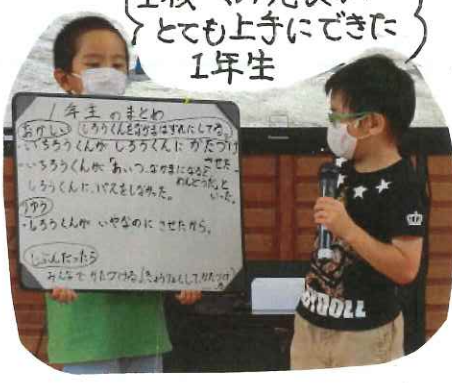 とても上手にできた
1年生
1年生のまとめ
おかしい しろうくんをなかまはずれにしてる。
・いちろうくんが しろうくんに かたづけ
させた
・いちろうくんが「あいつ、なかまになると
めんどうだ。」と
しろうくんに、パスをしなかった。
いった。
りゆう
・しろうくんが いやなのに させたから。
じぶんだったら
みんなで かたづける。